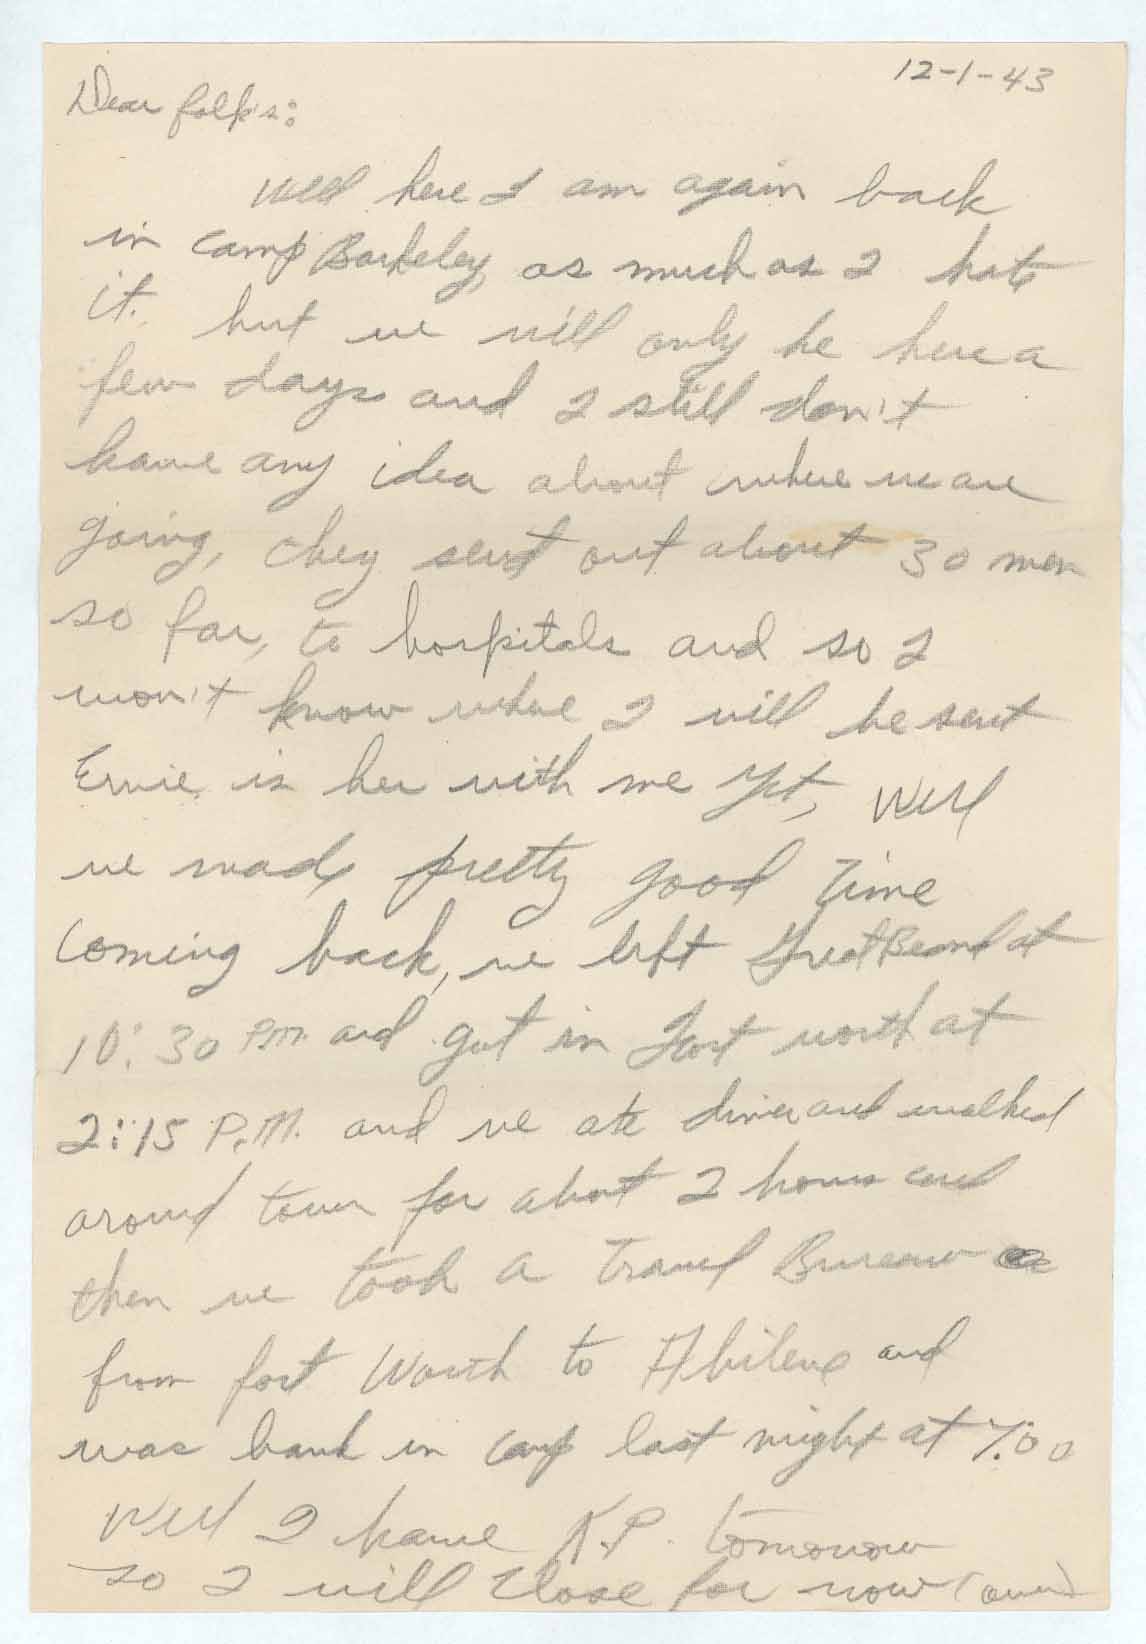 12-1-43
Dear folks:
Well here I am again back
in Camp Barkeley, as much as I hate
it. but we will only be here a
few days and I still don't
have any idea about where we are
going, they sent out about 30 men
so far, to hospitals and so I
won't know where I will be sent
Ernie is her with me yet, Well
we made pretty good time
coming back, we left Great Bend at
10:30 P.M. and got in Fort worth at
2:15 P.M. and we ate diner and walked
around town for about 2 hours and
then we took a Travel Bureau
from fort Worth to Abilene and
was back in camp last night at 7:00
Well I have K.P. tomorrow
so I will close for now (over)